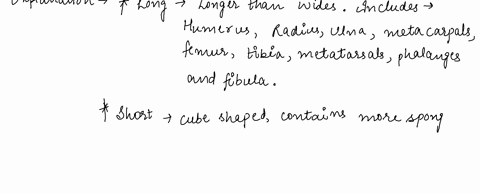 Explanation → * Long → Longer than wides. Includes →
Humerus, Radius, ulna, metacarpals,
femur, tibia, metatarsals, phalanges
and fibula.
* Short → cube shaped, contains more spong